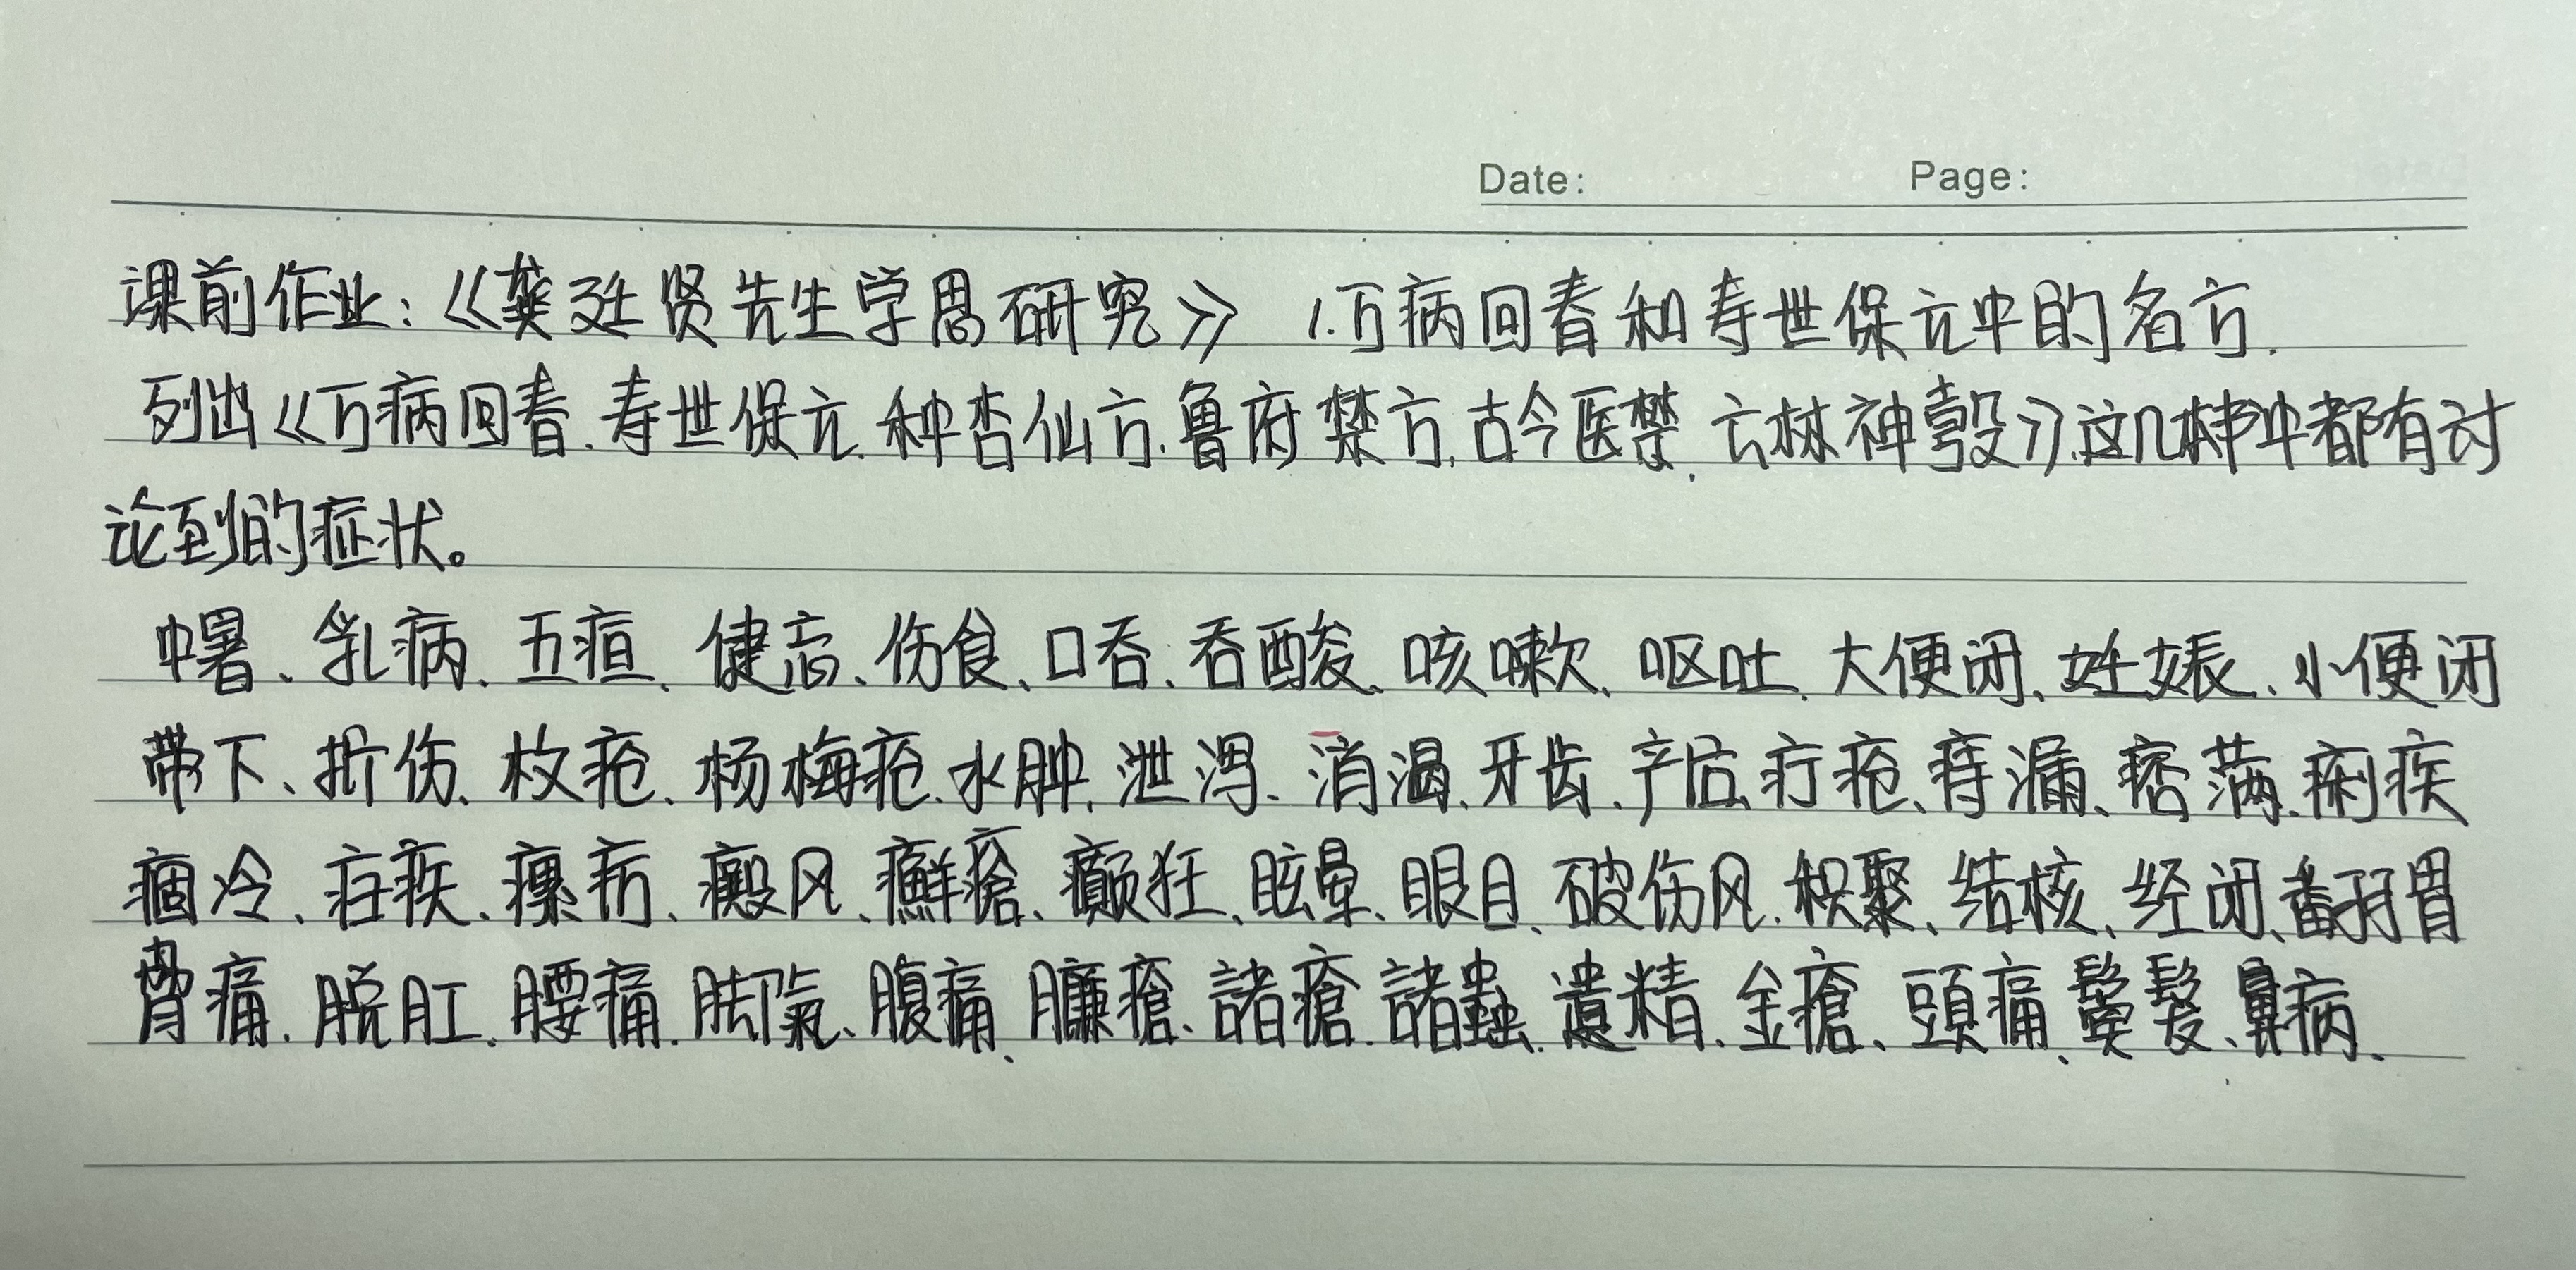 Date: Page:
课前作业:《龚廷贤先生学思研究》 1.万病回春和寿世保元中的名方.
列出《万病回春.寿世保元.种杏仙方.鲁府禁方.古今医鉴、云林神彀》这几本书中都有讨
论到的症状。
中暑、乳病、五疸、健忘、伤食、口舌、吞酸、咳嗽、呕吐、大便闭、妊娠、小便闭
带下、折伤、杖疮、杨梅疮、水肿、泄泻、消渴、牙齿、产后、疔疮、痔漏、痞满、痢疾
痼冷、疟疾、瘰疬、癜风、癬瘡、癫狂、眩晕、眼目、破伤风、积聚、结核、经闭、翻胃
脊痛、脱肛、腰痛、脚氣、腹痛、臁瘡、諸瘡、諸蟲、遺精、金瘡、頭痛、鬓髮、鼻病、